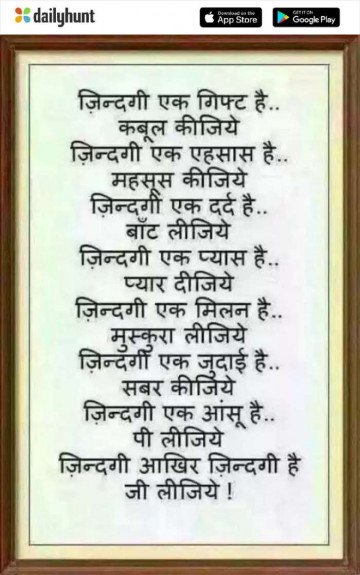 dailyhunt
Download on the App Store
GET IT ON Google Play
ज़िन्दगी एक गिफ्ट है..
कबूल कीजिये
ज़िन्दगी एक एहसास है..
महसूस कीजिये
ज़िन्दगी एक दर्द है..
बाँट लीजिये
ज़िन्दगी एक प्यास है..
प्यार दीजिये
ज़िन्दगी एक मिलन है..
मुस्कुरा लीजिये
ज़िन्दगी एक जुदाई है..
सबर कीजिये
ज़िन्दगी एक आंसू है..
पी लीजिये
ज़िन्दगी आखिर ज़िन्दगी है
जी लीजिये !